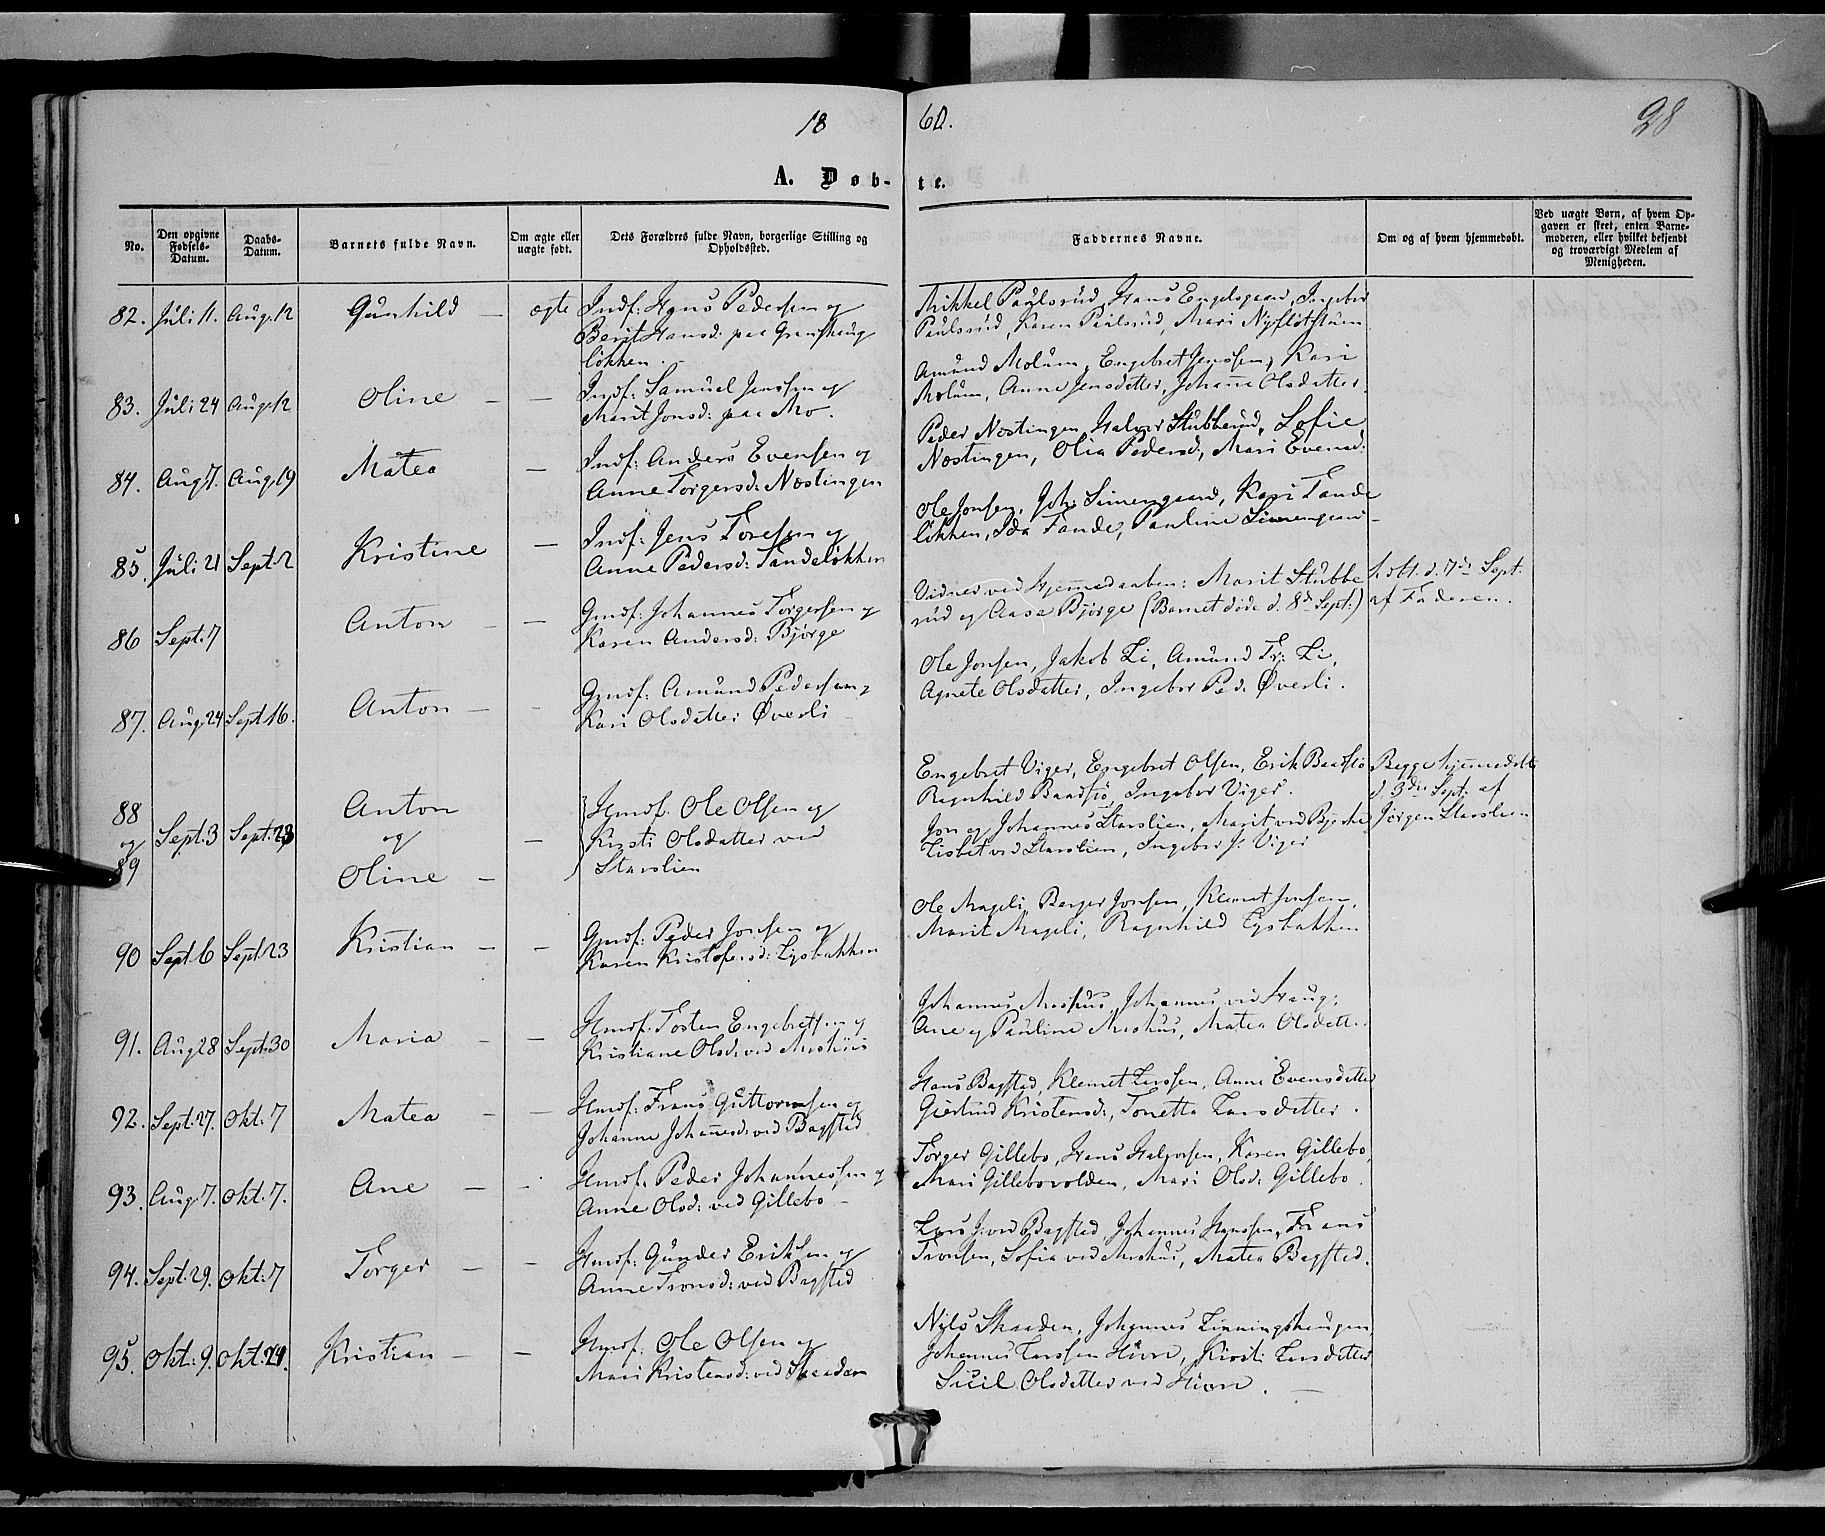 18 60. 28
A. Døb- te.
No. Den opgivne Fødsels-Datum. Daabs-Datum. Barnets fulde Navn. Om ægte eller uægte født. Dets Forældres fulde Navn, borgerlige Stilling og Opholdssted. Faddernes Navne. Om og af hvem hjemmedøbt. Ved uægte Børn, af hvem Opgaven er skeet, enten Barnemoderen, eller hvilket bekjendt og troværdigt Medlem af Menigheden.
82. Juli 11. Aug. 12 Gunhild — ægte Indf: Hans Pedersen og
Berit Hansd: paa
løkken.
Mikkel Paulsrud, Hans Engelsgaard, Ingebor
Paulsrud, Karen Paulsrud, Mari
83. Juli 24 Aug. 12 Oline — — Indf: Samuel Jenssen og
Marit Jonsd: paa Mo.
Amund Molum, Engebret Jenssen, Kari
Molum, Anne Jensdatter, Johanne Olsdatter
84. Aug. 7. Aug. 19 Matea — Indf: Anders Evensen og
Anne Torgersd: Nøstingen
Peder Nøstingen, Halvor Stubberud, Sofie
Nøstingen, Olia Pedersd, Mari Evensd:
85. Juli 21 Sept. 2 Kristine — Indf: Jens Toresen og
Anne Pedersd: Tandeløkken
Ole Jonsen, Joh: Simengaard, Kari Tande
løkken, Ida Tande, Pauline Simengaard
86 Sept. 7 Anton — — Gmdf: Johannes Torgersen og
Karen Andersd: Bjørge
Vidner ved Hjemmedaaben: Marit Stubbe
rud og Aase Bjørge (Barnet døde d. 8de Sept:)
h. dbt. d. 7de Sept.
af Faderen.
87. Aug. 24 Sept. 16. Anton — - Gmdf: Amund Pedersen og
Kari Olsdatter Øverli
Ole Jonsen, Jakob Li, Amund Tr: Li,
Agnete Olsdatter, Ingebor Ped: Øverli.
88
og
89
Sept. 3 Sept. 23
Anton
og
Oline —
—
Hmdf. Ole Olsen og
Kirsti Olsdatter ved
Starslien
Engebret Viger, Engebret Olsen, Erik Baadsto
Ragnhild Baadsto, Ingebor Viger.
Jon og Johannes Starslien, Marit ved Bjerke
Lisbet ved Starslien, Ingebor J: Viger
Begge hjemmedøbt
d. 3die Sept: af
Jörgen Starslien
90 Sept. 6 Sept. 23 Kristian — — Gmdf: Peder Jonsen og
Karen Kristofersd: Lysbakken
Ole Mageli, Berger Jonsen, Klemet Jonsen,
Marit Mageli, Ragnhild Lysbakken
91. Aug 28 Sept. 30 Maria — — Hmdf. Tosten Engebretsen og
Kristiane Olsd: ved Moshus
Johannes Moshus, Johannes ved Haug,
Ane og Pauline Moshus, Matea Olsdatter
92. Sept. 27. Okt. 7 Matea — — Hmdf: Frans Guttormsen og
Johanne Johannesd: ved Bagstad
Hans Bagstad, Klemet Larssen, Anne Evensdatter
Gjertrud Kristensd:, Tonetta Larsdatter.
93. Aug. 7. Okt. 7. Ane — - Hmdf: Peder Johannessen og
Anne Olsd: ved Gillebo —
Torger Gillebo, Hans Halvorsen, Karen Gillebo,
Mari Gillebovolden, Mari Olsd: Gillebo.
94. Sept. 29. Okt: 7 Torger — — Hmdf: Gunder Eriksen og
Anne Tronsd: ved Bagstad
Lars J: ved Bagstad, Johannes Hanssen, Frans
Tronsen, Sofia ved Moshus, Matea Bagstad.
95. Okt: 9. Okt: 21. Kristian — — Hmdf. Ole Olsen og
Mari Kristensd: ved Skaaden
Nils Skaaden, Johannes Linningshaugen,
Johannes Larssen Huvn, Kirsti Larsdatter
Sicil Olsdatter ved Huvn. —